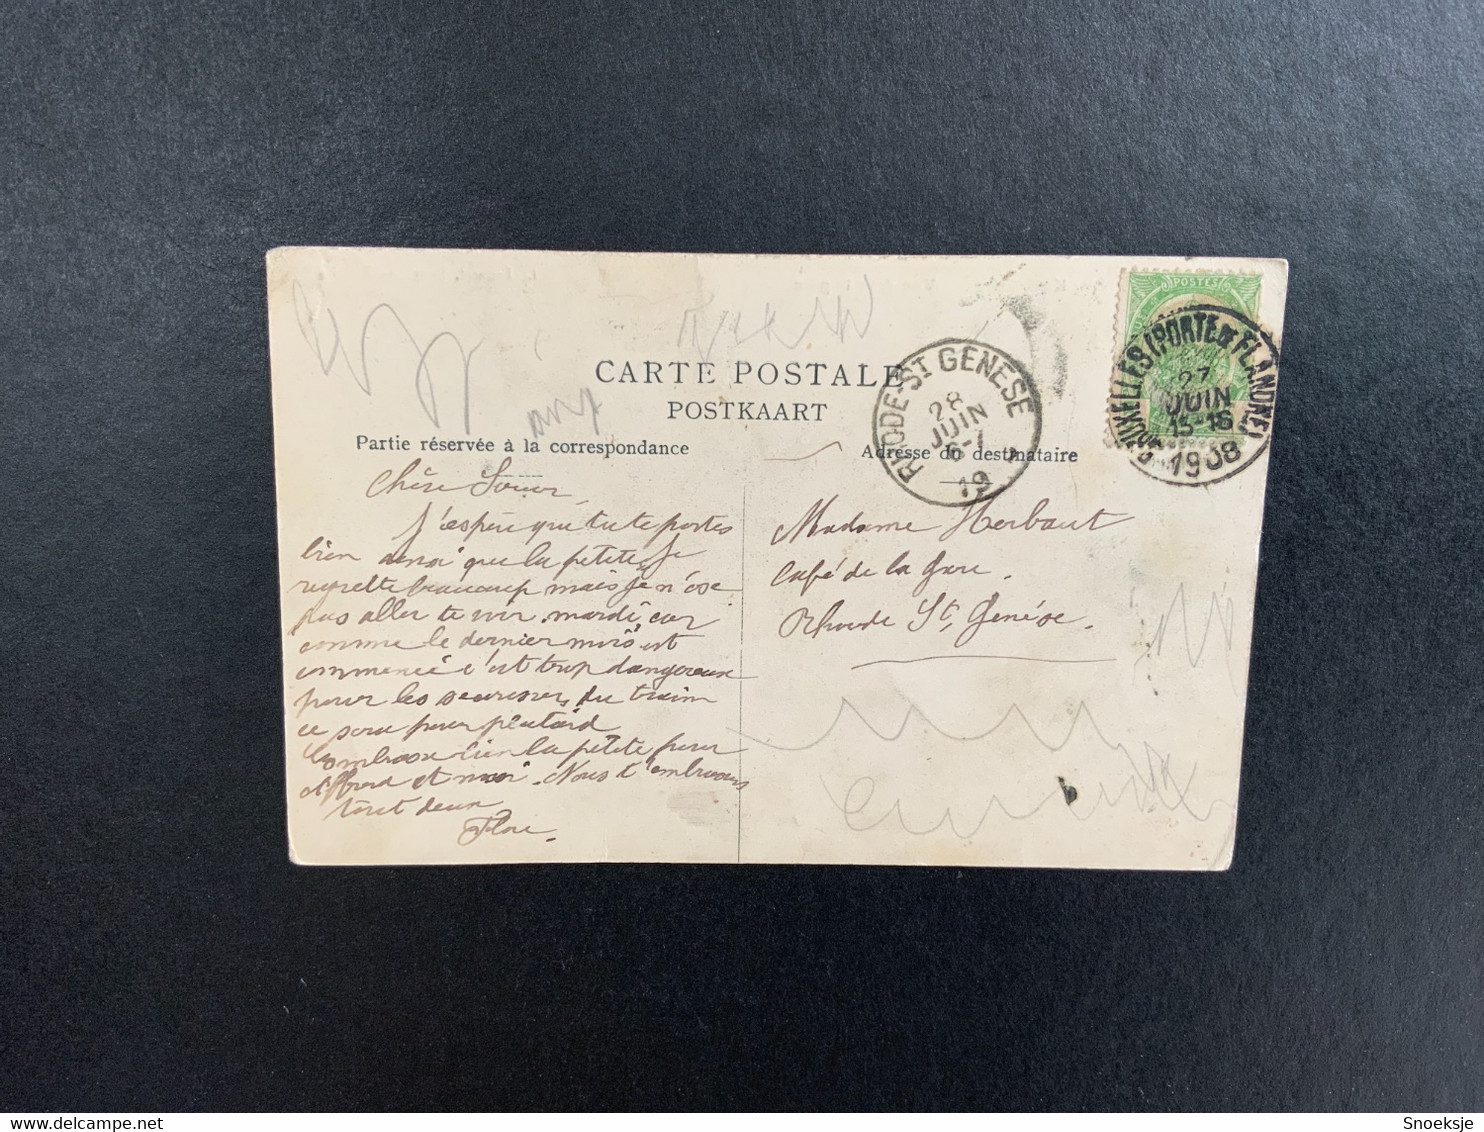 CARTE POSTALE
POSTKAART
Partie réservée à la correspondance
Adresse du destinataire
Chère Soeur,
J'espère que tu te portes
bien ainsi que la petite, Je
regrette beaucoup mais je n'ose
pas aller te voir mardi, car
comme le dernier mois est
commencé c'est trop dangereux
pour les secousses du train
ce sera pour plutard
Embrasse bien la petite pour
et moi. Nous t'embrassons
tout deux
Flore.
Madame Herbaut
Café de la Gare.
Rhode St. Genése.
POSTES
BRUXELLES (PORTE DE FLANDRE)
27
JUIN
15-16
1908
RHODE-ST GENESE
28
JUIN
6-7
19
Snoeksje